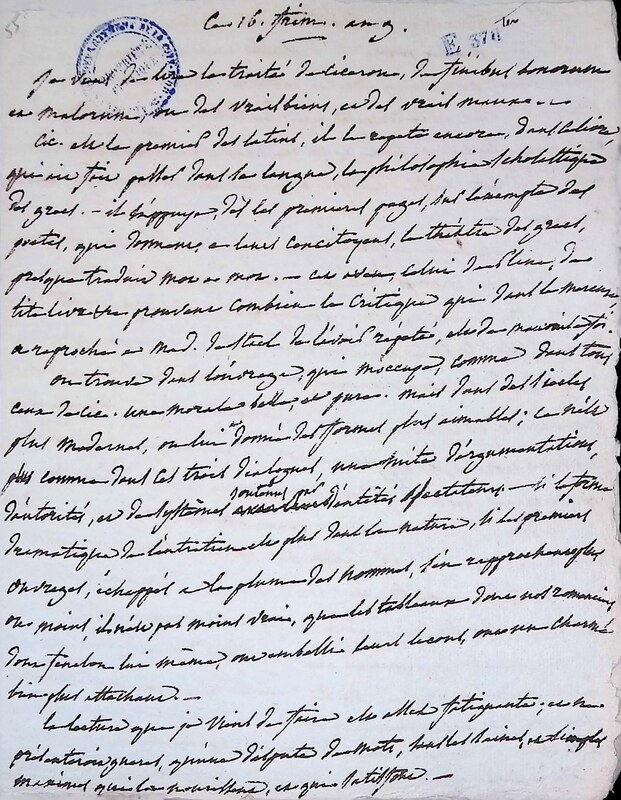 55
Ce 16. frim. an 9.
E 378
je viens de lire le traité de Ciceron, de finibus bonorum
et malorum, ou des vrais biens, et des vrais maux. —
Cic. est le premier des latins, il le repete encore, dans ce livre,
qui ait fait passer dans sa langue, la philosophie scholastique
des grecs. — il s'appuye, dès les premieres pages, sur l'exemple des
poetes, qui donnent, a leurs concitoyens, le théâtre des grecs,
presque traduit mot a mot. — cet aveu, celui de Pline, de
tite live &c prouvent combien la critique qui dans le mercure,
a reproché a mad. de stael de l'avoir répété, est de mauvaise foi.
on trouve dans l'ouvrage, qui m'occupe, comme dans tous
ceux de cic. une morale belle, et pure. mais dans des siecles
plus modernes, on lui a donné des formes plus aimables; ce n'est
plus comme dans ces trois dialogues, une suite d'argumentations,
d'autorités, et de systêmes soutenus par d'entêtés — si la forme
dramatique de l'entretien est plus dans la nature, si les premiers
ouvrages, échappés a la plume des hommes, s'en rapprochent plus
ou moins, il n'est pas moins vrai, que les tableaux dont nos romanciers,
dont fenelon lui même, ont embelli leurs leçons, ont un charme
bien plus attachant. —
la lecture que je viens de faire est assez fatigante; et ne
présenteroit gueres, qu'une dispute de mots, sans les saines, et simples
maximes qui la nourrissent, et qui satisfont. —